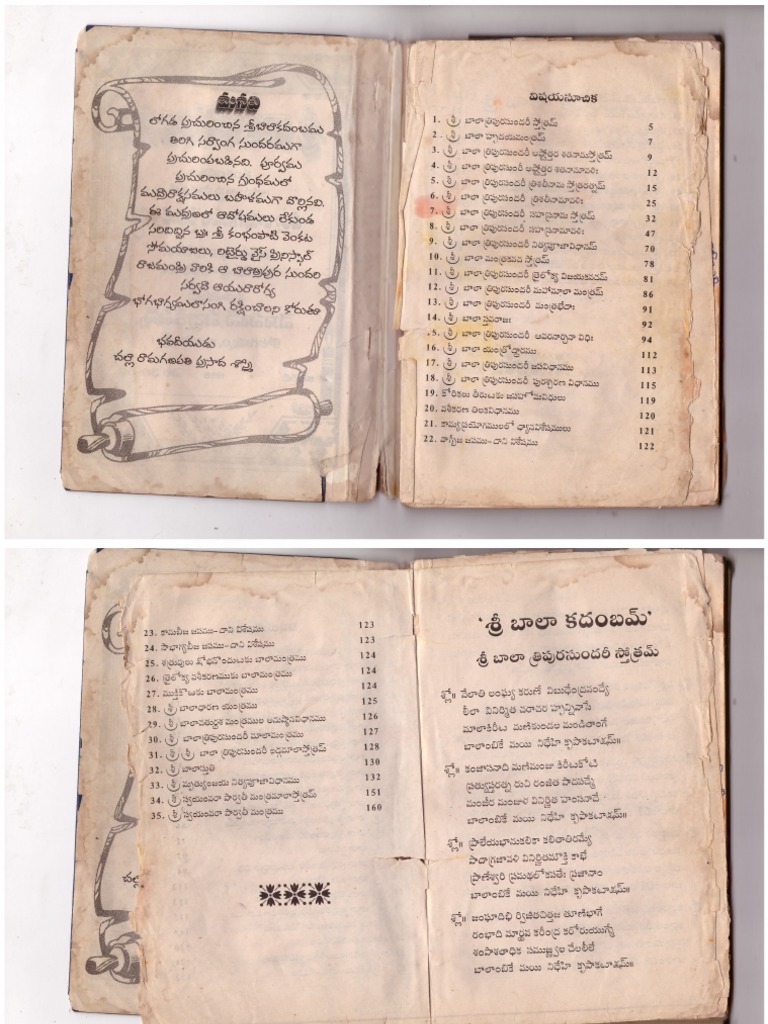 మన్నవి
లోగడ ప్రచురించిన శ్రీబాలాకదంబము
తిరిగి సర్వాంగ సుందరముగా
ప్రచురింపబడినది. పూర్వము
ప్రచురించిన గ్రంథములో
ముద్రారాక్షసములు బహుళముగా దొర్లినవి.
ఈ ముద్రణలో ఆదోషములు లేకుండ
సరిదిద్దిన బ్ర॥ శ్రీ కంభంపాటి వెంకట
సోమయాజులు, రిటైర్డు వైస్ ప్రిన్సిపాల్
రాజమండ్రి వారికి ఆ బాలాత్రిపుర సుందరి
సర్వదా ఆయురారోగ్య
భోగభాగ్యములొసంగి రక్షించాలని కోరుతూ
భవదీయుడు
చల్లా రామగణపతి ప్రసాద శాస్త్రి
విషయసూచిక
1. శ్రీ బాలా త్రిపురసుందరీ స్తోత్రమ్ 5
2. శ్రీ బాలా హృదయమంత్రమ్ 7
3. శ్రీ బాలా త్రిపురసుందరీ అష్టోత్తర శతనామస్తోత్రమ్ 9
4. శ్రీ బాలా త్రిపురసుందరీ అష్టోత్తర శతనామావళిః 12
5. శ్రీ బాలా త్రిపురసుందరీ త్రిశతీనామ స్తోత్రరత్నమ్ 15
6. శ్రీ బాలా త్రిపురసుందరీ త్రిశతీనామావళిః 25
7. శ్రీ బాలా త్రిపురసుందరీ సహస్రనామ స్తోత్రమ్ 32
8. శ్రీ బాలా త్రిపురసుందరీ సహస్రనామావళిః 47
9. శ్రీ బాలా త్రిపురసుందరీ నిత్యపూజావిధానమ్ 70
10. శ్రీ బాలా మంత్రకవచ స్తోత్రమ్ 78
11. శ్రీ బాలా త్రిపురసుందరీ త్రైలోక్య విజయకవచమ్ 81
12. శ్రీ బాలా త్రిపురసుందరీ మహామాలా మంత్రమ్ 86
13. శ్రీ బాలా త్రిపురసుందరీ మంత్రభేదాః 91
14. శ్రీ బాలా స్తవరాజః 92
5. శ్రీ బాలా త్రిపురసుందరీ ఆవరణార్చనా విధిః 94
16. శ్రీ బాలా యంత్రోద్ధారము 112
17. శ్రీ బాలా త్రిపురసుందరీ జపవిధానము 113
18. శ్రీ బాలా త్రిపురసుందరీ పురశ్చరణ విధానము 115
19. కోరికలు తీరుటకు జపహోమవిధులు 119
20. వశీకరణ తిలకవిధానము 120
21. కామ్యప్రయోగములలో ధ్యానవిశేషములు 121
22. వాగ్బీజ జపము-దాని విశేషము 122
23. కామబీజ జపము-దాని విశేషము 123
24. సౌభాగ్యబీజ జపము-దాని విశేషము 123
25. శత్రువులు క్షోభనొందుటకు బాలామంత్రము 124
26. త్రైలోక్య వశీకరణముకు బాలామంత్రము 124
27. ముక్తికొఱకు బాలామంత్రము 124
28. శ్రీ బాలాధారణ యంత్రము 125
29. శ్రీ బాలాచతుర్దశ మంత్రముల అనుష్ఠానవిధానము 126
30. శ్రీ బాలాత్రిపురసుందరీ మాలామంత్రము 127
31. శ్రీ శ్రీ బాలా త్రిపురసుందరీ ఖడ్గమాలాస్తోత్రమ్ 128
32. శ్రీ బాలాస్తుతి 130
33. శ్రీ మృత్యుంజయ నిత్యపూజావిధానము 132
34. శ్రీ స్వయంవరా పార్వతీ మంత్రమాలాస్తోత్రమ్ 151
35. శ్రీ స్వయంవరా పార్వతీ మంత్రము 160
'శ్రీ బాలా కదంబమ్'
శ్రీ బాలా త్రిపురసుందరీ స్తోత్రమ్
శ్లో॥ వేలాతి లంఘ్య కరుణే విబుధేంద్రవంద్యే
లీలా వినిర్మిత చరాచర హృన్నివాసే
మాలాకిరీట మణికుండల మండితాంగే
బాలాంబికే మయి నిధేహి కృపాకటాక్షమ్॥
శ్లో॥ కంజాసనాది మణిమంజు కిరీటకోటి
ప్రత్యుప్తరత్న రుచి రంజిత పాదపద్మే
మంజీర మంజుళ వినిర్జిత హంసనాదే
బాలాంబికే మయి నిధేహి కృపాకటాక్షమ్॥
శ్లో॥ ప్రాలేయభానుకలికా కలితాతిరమ్యే
పాదాగ్రజావళి వినిర్జితమౌక్తి కాభే
ప్రాణేశ్వరి ప్రమథలోకపతేః ప్రజానాం
బాలాంబికే మయి నిధేహి కృపాకటాక్షమ్॥
శ్లో॥ జంఘాదిభి ర్విజితచిత్తజ తూణిభాగే
రంభాది మార్దవ కరీంద్ర కరోరుయుగ్మే
శంపాశతాధిక సముజ్జ్వల చేలలీలే
బాలాంబికే మయి నిధేహి కృపాకటాక్షమ్॥